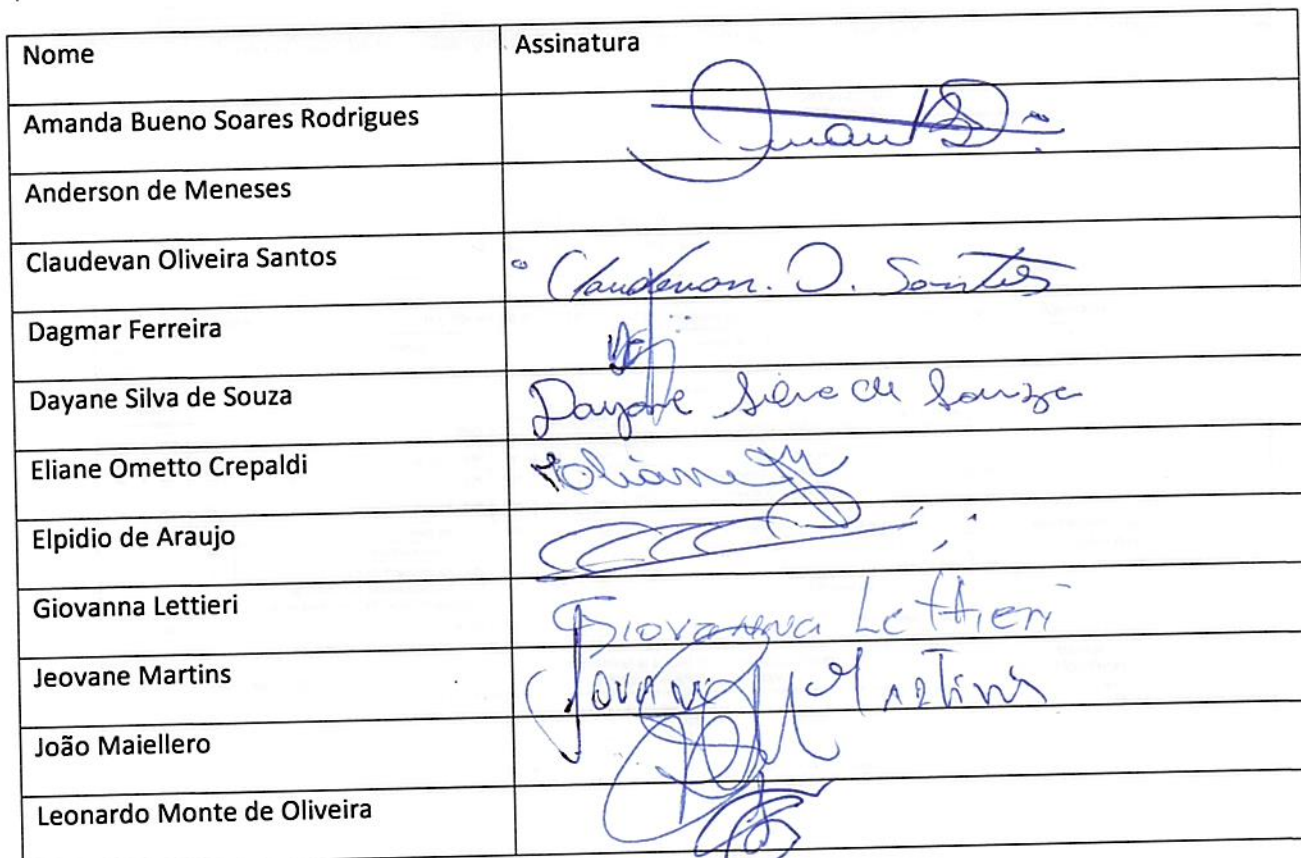 Nome Assinatura
Amanda Bueno Soares Rodrigues
Anderson de Meneses
Claudevan Oliveira Santos Claudevan. O. Santos
Dagmar Ferreira
Dayane Silva de Souza Dayane Silva de Souza
Eliane Ometto Crepaldi Eliane
Elpidio de Araujo
Giovanna Lettieri Giovanna Lettieri
Jeovane Martins Martins
João Maiellero
Leonardo Monte de Oliveira